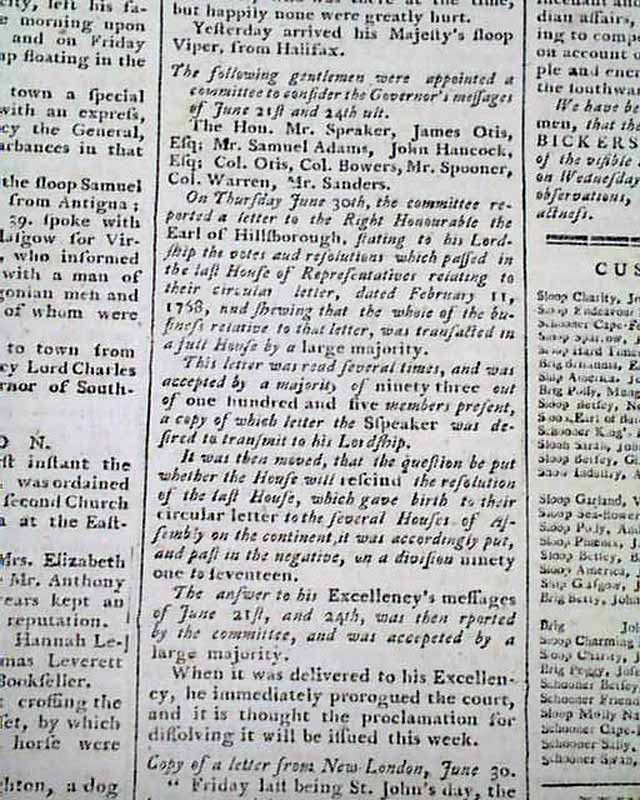 city, left his fa-
e morning upon
and on Friday
up floating in the
town a ſpecial
with an expreſs,
cy the General,
arbances in that
the ſloop Samuel
from Antigua;
39. ſpoke with
laſgow for Vir-
, who informed
with a man of
gonian men and
of whom were
to town from
cy Lord Charles
rnor of South-
O N.
ſt inſtant the
was ordained
ſecond Church
a at the Eaſt-
Mrs. Elizabeth
e Mr. Anthony
ears kept an
reputation.
Hannah Le-
mas Leverett
Bookſeller.
croſſing the
ſet, by which
horſe were
ghton, a dog
but happily none were greatly hurt.
Yeſterday arrived his Majeſty's ſloop
Viper, from Halifax.
The following gentlemen were appointed a
committee to conſider the Governor's meſſages
of June 21ſt and 24th ult.
The Hon. Mr. Speaker, James Otis,
Eſq; Mr. Samuel Adams, John Hancock,
Eſq; Col. Otis, Col. Bowers, Mr. Spooner,
Col. Warren, Mr. Sanders.
On Thurſday June 30th, the committee re-
ported a letter to the Right Honourable the
Earl of Hillſborough, ſtating to his Lord-
ſhip the votes aud reſolutions which paſſed in
the laſt Houſe of Repreſentatives relating to
their circular letter, dated February 11,
1768, and ſhewing that the whole of the bu-
ſineſs relative to that letter, was tranſacted in
a full Houſe by a large majority.
This letter was read ſeveral times, and was
accepted by a majority of ninety three out
of one hundred and five members preſent,
a copy of which letter the Sſpeaker was de-
ſired to tranſmit to his Lordſhip.
It was then moved, that the queſtion be put
whether the Houſe will reſcind the reſolution
of the laſt Houſe, which gave birth to their
circular letter to the ſeveral Houſes of Aſ-
ſembly on the continent, it was accordingly put,
and paſt in the negative, on a diviſion ninety
one to ſeventeen.
The anſwer to his Excellency's meſſages
of June 21ſt, and 24th, was then rported
by the committee, and was accepeted by a
large majority.
When it was delivered to his Excellen-
cy, he immediately prorogued the court,
and it is thought the proclamation for
diſſolving it will be iſſued this week.
Copy of a letter from New London, June 30.
" Friday laſt being St. John's day, the
dian affairs,
ing to compe
on account o
ple and ener
the ſouthwar
We have b
men, that the
BICKERS
of the viſible
on Wedneſday
obſervations,
actneſs.
CUS
Sloop Charity, J
Sloop Endeavour
Schooner Cape-F
Sloop Sparrow, J
Sloop Hard Times
Brig Britannia, E
Ship America, J
Brig Polly, Mung
Sloop Betſey, N
Sloop Earl of
Schooner King'
Sloop Sarah, John
Sloop Betſey, G
Snow Induſtry,
Sloop Garland,
Sloop Sea-Flower
Sloop Polly, And
Sloop Phœnix, J
Sloop Betſey, B
Sloop America,
Ship Glaſgow, J
Brig Betſy, John
Brig Joh
Sloop Charming
Sloop Charity, J
Brig Peggy, Joſe
Schooner Betſey
Schooner Friend
Sloop Molly, N
Schooner Cape-
Schooner Sally,
Schooner Swan,